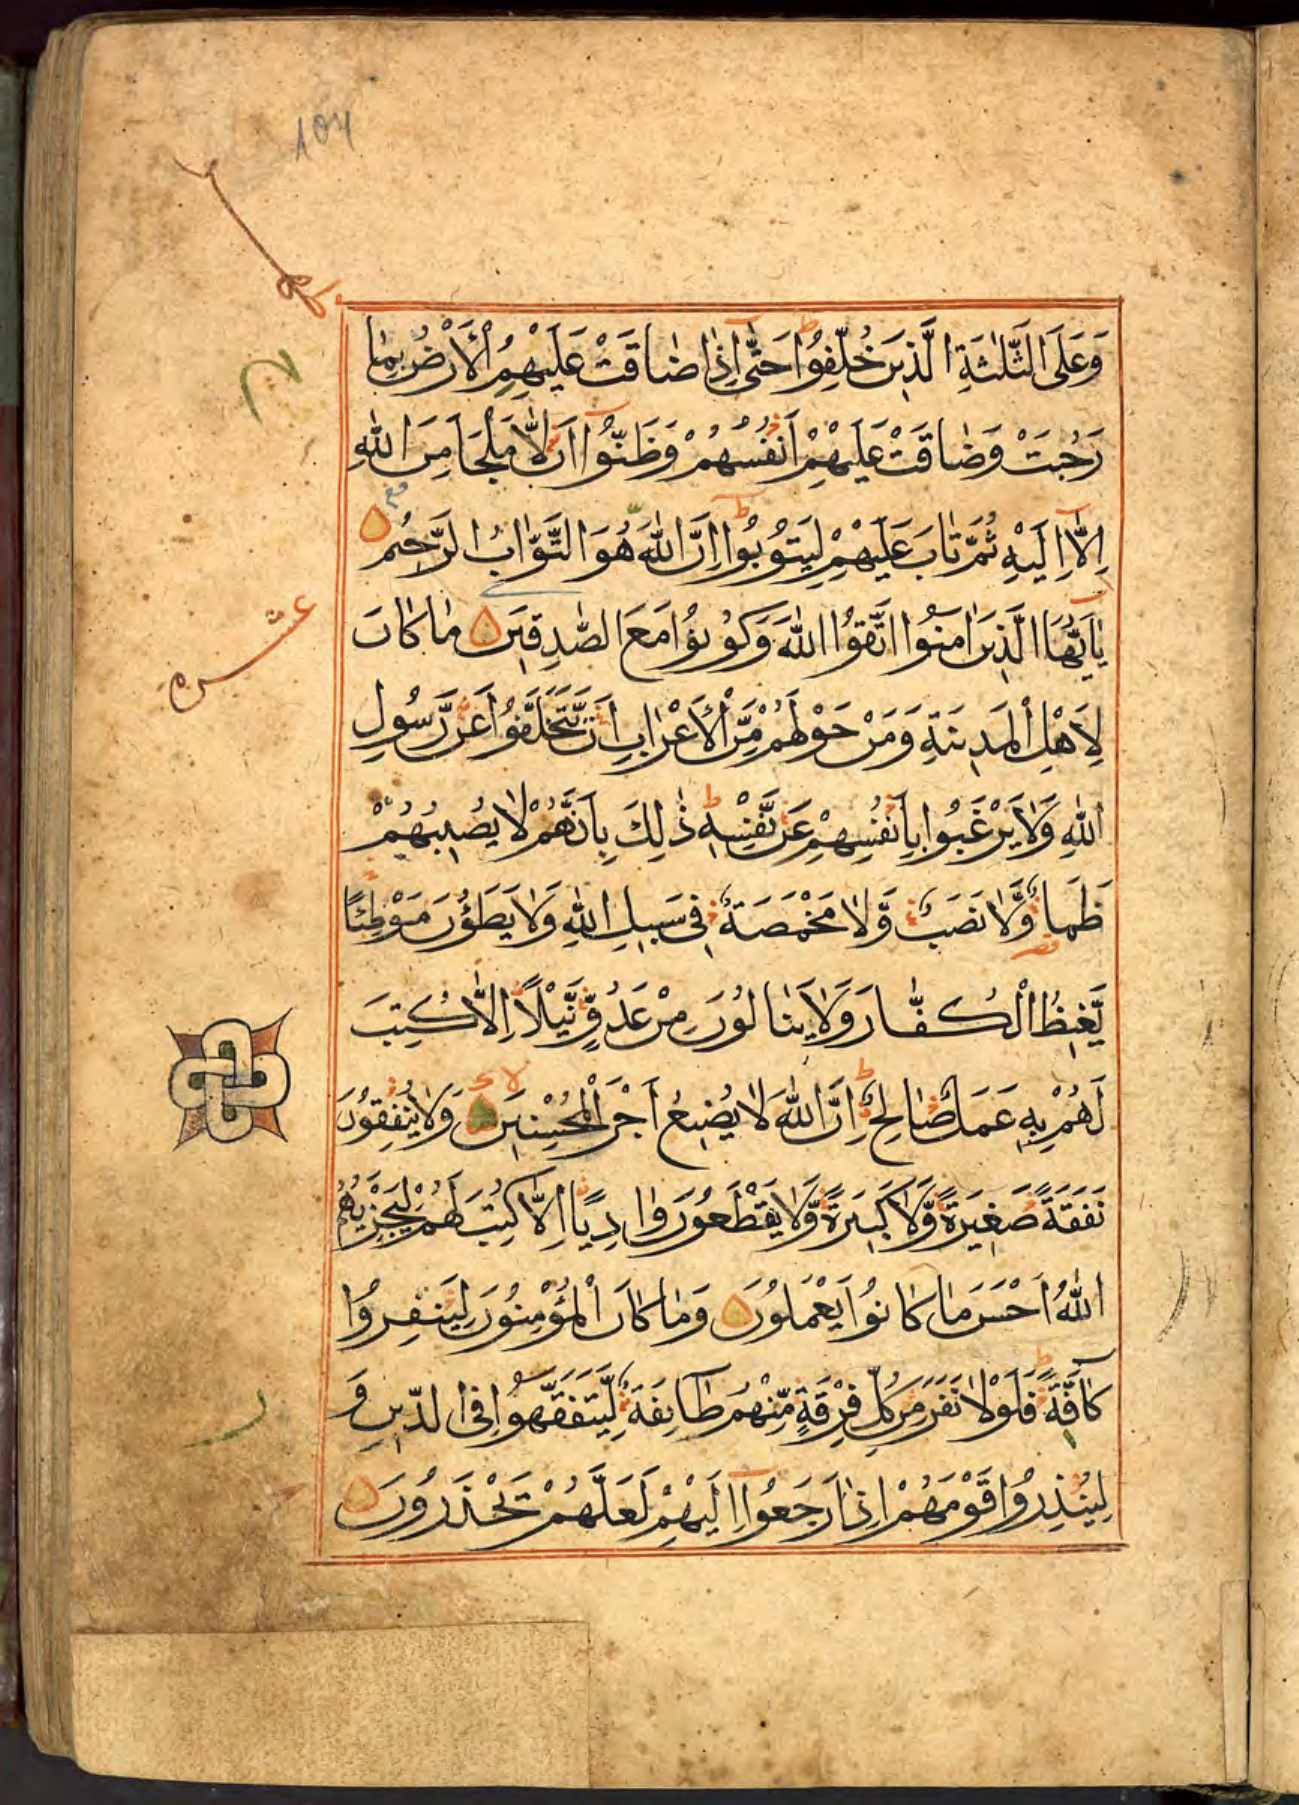 وَعَلَى الثَّلٰثَةِ الَّذِينَ خُلِّفُوا حَتّٰى اِذَا ضَاقَتْ عَلَيْهِمُ الْاَرْضُ بِمَا
رَحُبَتْ وَضَاقَتْ عَلَيْهِمْ اَنْفُسُهُمْ وَظَنُّوا اَنْ لَّا مَلْجَاَ مِنَ اللهِ
اِلَّا اِلَيْهِ ثُمَّ تَابَ عَلَيْهِمْ لِيَتُوبُوا اِنَّ اللهَ هُوَ التَّوَّابُ الرَّحِيمُ
يٰاَيُّهَا الَّذِينَ اٰمَنُوا اتَّقُوا اللهَ وَكُونُوا مَعَ الصّٰدِقِينَ مَا كَانَ
عشره
لِاَهْلِ الْمَدِينَةِ وَمَنْ حَوْلَهُمْ مِّنَ الْاَعْرَابِ اَنْ يَّتَخَلَّفُوا عَنْ رَّسُولِ
اللهِ وَلَا يَرْغَبُوا بِاَنْفُسِهِمْ عَنْ نَّفْسِهٖ ذٰلِكَ بِاَنَّهُمْ لَا يُصِيبُهُمْ
ظَمَأٌ وَّلَا نَصَبٌ وَّلَا مَخْمَصَةٌ فِى سَبِيلِ اللهِ وَلَا يَطَؤُنَ مَوْطِئًا
يَّغِيظُ الْكُفَّارَ وَلَا يَنَالُونَ مِنْ عَدُوٍّ نَّيْلًا اِلَّا كُتِبَ
لَهُمْ بِهٖ عَمَلٌ صَالِحٌ اِنَّ اللهَ لَا يُضِيعُ اَجْرَ الْمُحْسِنِينَ وَلَا يُنْفِقُونَ
نَفَقَةً صَغِيرَةً وَّلَا كَبِيرَةً وَّلَا يَقْطَعُونَ وَادِيًا اِلَّا كُتِبَ لَهُمْ لِيَجْزِيَهُمُ
اللهُ اَحْسَنَ مَا كَانُوا يَعْمَلُونَ وَمَا كَانَ الْمُؤْمِنُونَ لِيَنْفِرُوا
كَآفَّةً فَلَوْلَا نَفَرَ مِنْ كُلِّ فِرْقَةٍ مِّنْهُمْ طَآئِفَةٌ لِّيَتَفَقَّهُوا فِى الدِّينِ وَ
لِيُنْذِرُوا قَوْمَهُمْ اِذَا رَجَعُوا اِلَيْهِمْ لَعَلَّهُمْ يَحْذَرُونَ